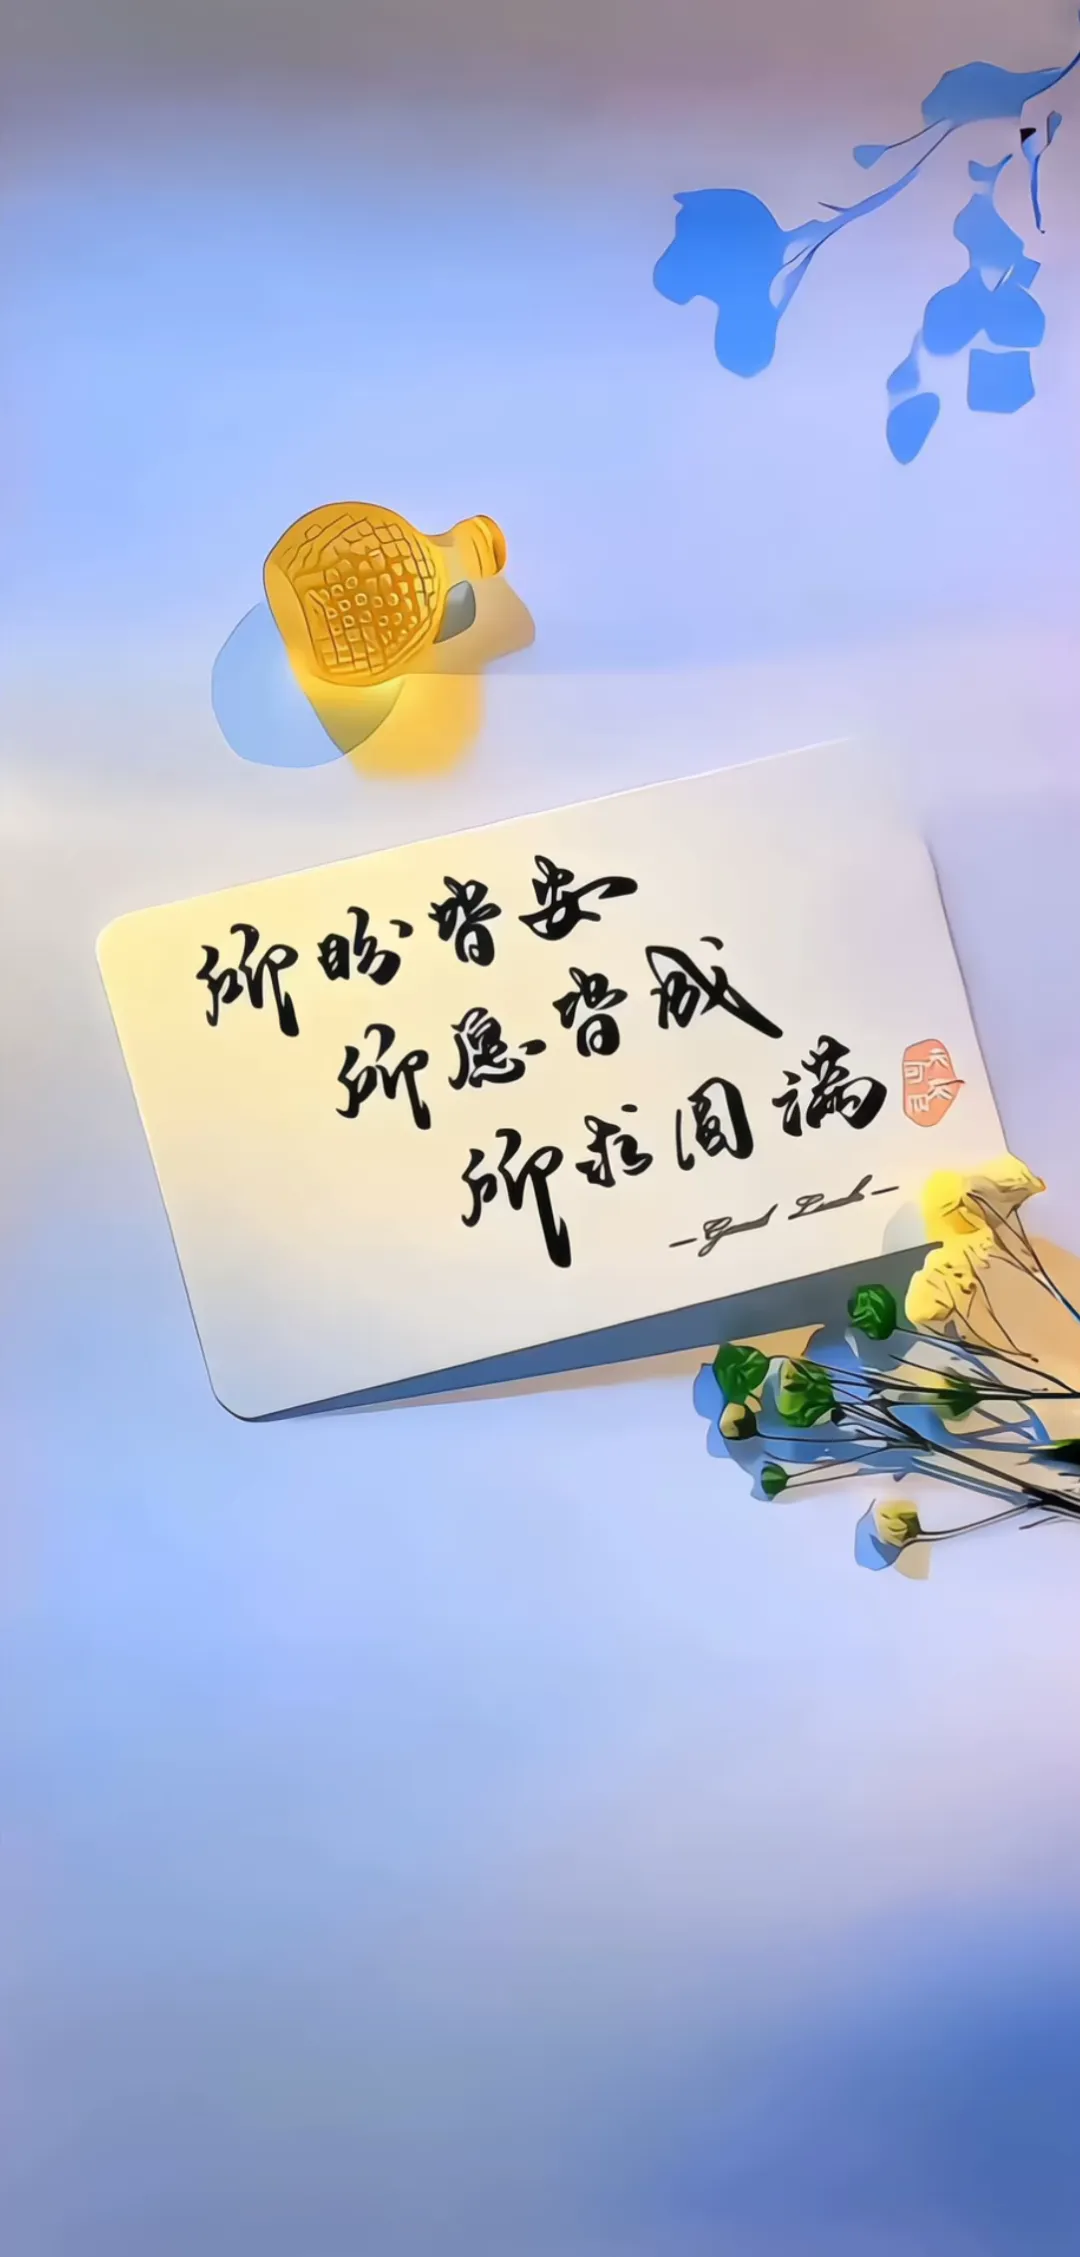 所盼皆安
所愿皆成
所求圆满
—Good Luck—